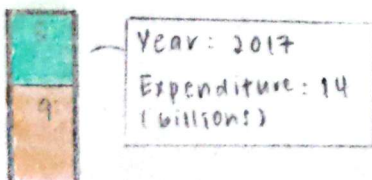 Year: 2017
Expenditure: 14
(billions)
9